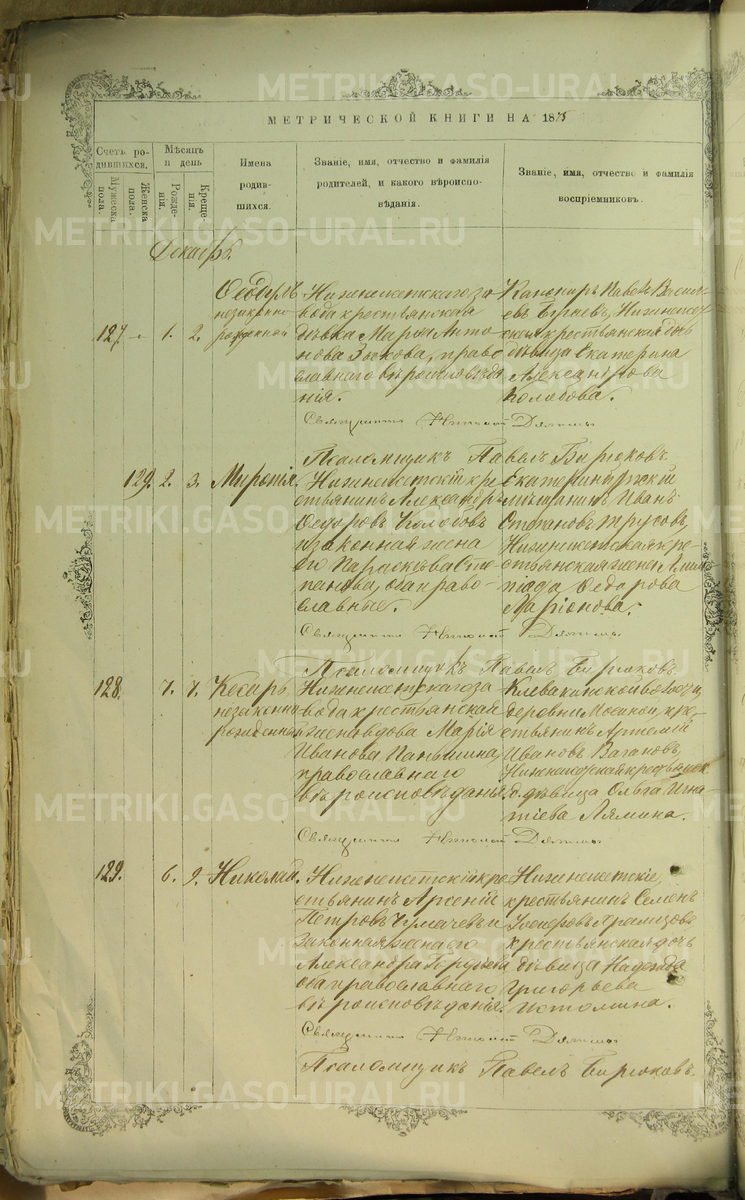 МЕТРИЧЕСКОЙ КНИГИ НА 1875
Счетъ родившихся.
Мужеска пола.
Женска пола.
Мѣсяцъ и день
Рожденія.
Крещенія.
Имена родившихся.
Званіе, имя, отчество и фамилія родителей, и какого вѣроисповѣданія.
Званіе, имя, отчество и фамилія воспріемниковъ.
Декабрь.
127 1. 2.
Ѳеодоръ
незаконно
рожденный
Нижнеисетскаго за
вода крестьянская
дѣвка Марія Анто
нова Зоскова, право
славнаго вѣроисповѣда
нія.
Павелъ Василь
евъ Бугаевъ, Нижнеисет
ская крестьянская дочь
дѣвица Екатерина
Александрова
Колобова.
Священникъ Николай
Псаломщикъ Павелъ Бирюковъ.
129. 2. 3.
Миропія.
Нижнеисетскій кре
стьянинъ Александръ
Ѳедоровъ Колобовъ
и законная жена
его Параскева Сте
панова, оба право-
славные.
Екатеринбургскій
мѣщанинъ Иванъ
Стефановъ Трусовъ,
Нижнеисетская кре
стьянская жена Олим
піада Ѳедорова
Ларіонова.
Священникъ Николай
Псаломщикъ Павелъ Бирюковъ
128. 7. 7.
Кесарь
незаконно
рожденный
Нижнеисетскаго за
вода крестьянская
жена вдова Марія
Иванова Паньшина,
православнаго
вѣроисповѣданья.
Клевакинской волости
деревни Мосиной, кре
стьянинъ Артемій
Ивановъ Вагановъ,
Нижнеисетская крестьянск.
д. дѣвица Ольга Игна
тіева Лямина.
Священникъ Николай
129. 6. 9.
Николай.
Нижнеисетскій кре
стьянинъ Арсеній
Петровъ Чумачевъ и
законная жена его
Александра Гордѣева
оба православнаго
вѣроисповѣданья.
Нижнеисетскіе
крестьянинъ Семенъ
крестьянская дочь
дѣвица Надежда
Григорьева
Истомина.
Священникъ Николай
Псаломщикъ Павелъ Бирюковъ.
METRIKI.GASO-URAL.RU